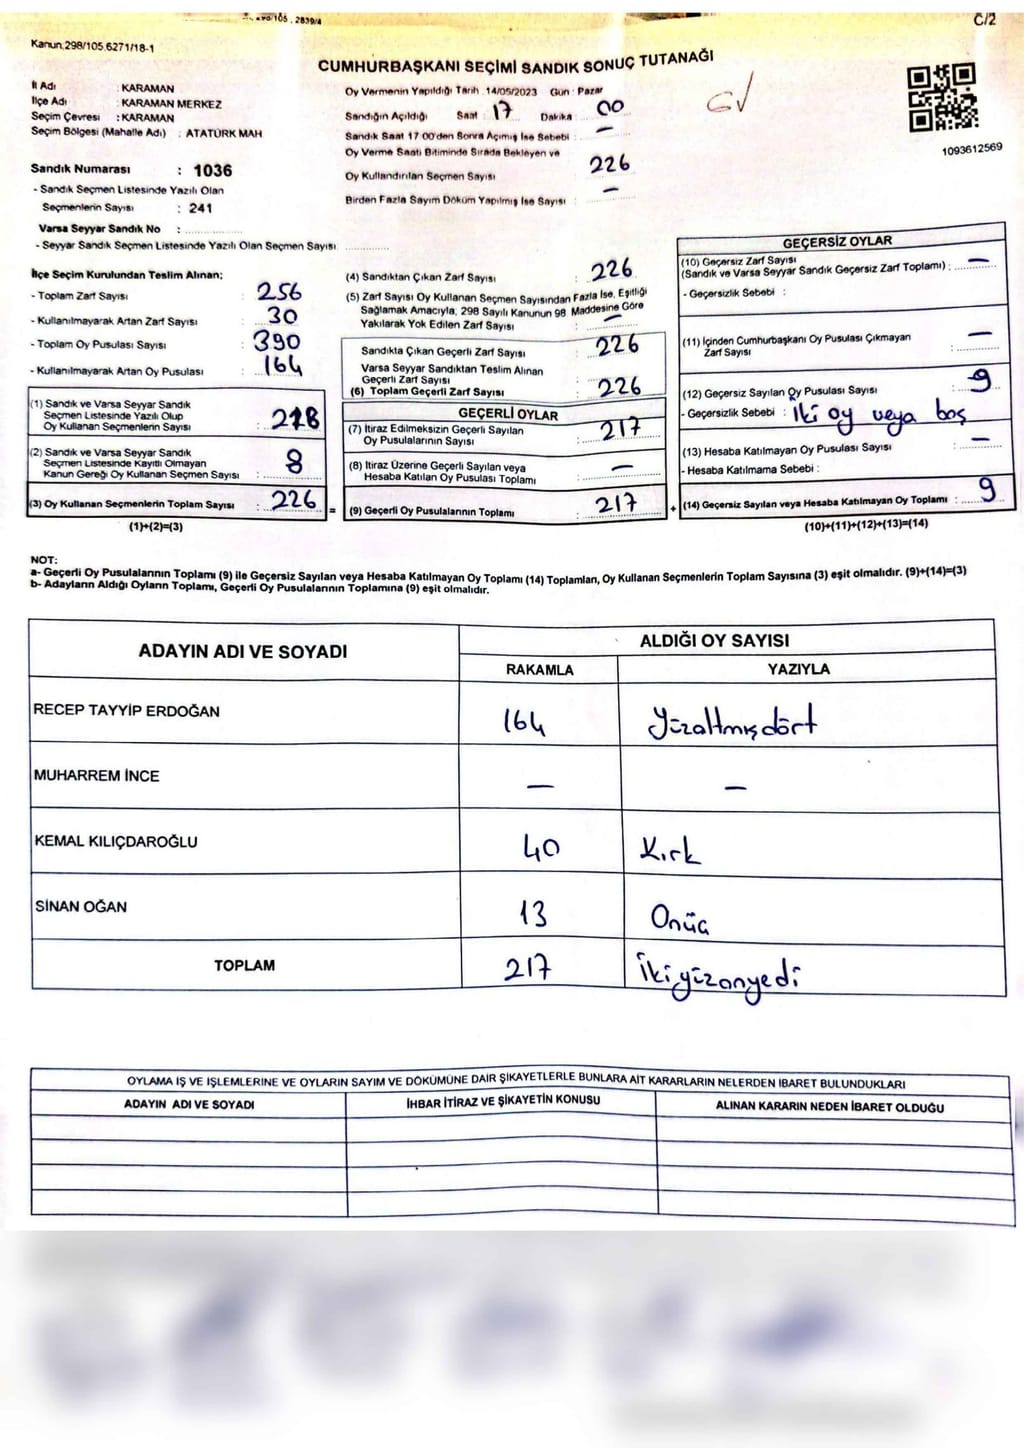 C/2
Kanun.298/105.6271/18-1
CUMHURBAŞKANI SEÇİMİ SANDIK SONUÇ TUTANAĞI
İl Adı : KARAMAN
İlçe Adı : KARAMAN MERKEZ
Seçim Çevresi : KARAMAN
Seçim Bölgesi (Mahalle Adı) : ATATÜRK MAH
Sandık Numarası : 1036
- Sandık Seçmen Listesinde Yazılı Olan
Seçmenlerin Sayısı : 241
Varsa Seyyar Sandık No :
- Seyyar Sandık Seçmen Listesinde Yazılı Olan Seçmen Sayısı
Oy Vermenin Yapıldığı Tarih : 14/05/2023 Gün : Pazar
Sandığın Açıldığı Saat : 17 Dakika : 00
Sandık Saat 17:00'den Sonra Açımış İse Sebebi : —
Oy Verme Saati Bitiminde Sırada Bekleyen ve
Oy Kullandırılan Seçmen Sayısı 226
Birden Fazla Sayım Döküm Yapılmış İse Sayısı : —
1093612569
İlçe Seçim Kurulundan Teslim Alınan;
- Toplam Zarf Sayısı : 256
- Kullanılmayarak Artan Zarf Sayısı : 30
- Toplam Oy Pusulası Sayısı : 390
- Kullanılmayarak Artan Oy Pusulası : 164
(1) Sandık ve Varsa Seyyar Sandık
Seçmen Listesinde Yazılı Olup
Oy Kullanan Seçmenlerin Sayısı : 218
(2) Sandık ve Varsa Seyyar Sandık
Seçmen Listesinde Kayıtlı Olmayan
Kanun Gereği Oy Kullanan Seçmen Sayısı : 8
(3) Oy Kullanan Seçmenlerin Toplam Sayısı : 226 =
(1)+(2)=(3)
(4) Sandıktan Çıkan Zarf Sayısı : 226
(5) Zarf Sayısı Oy Kullanan Seçmen Sayısından Fazla İse, Eşitliği
Sağlamak Amacıyla; 298 Sayılı Kanunun 98 Maddesine Göre
Yakılarak Yok Edilen Zarf Sayısı : —
Sandıkta Çıkan Geçerli Zarf Sayısı : 226
Varsa Seyyar Sandıktan Teslim Alınan
Geçerli Zarf Sayısı
(6) Toplam Geçerli Zarf Sayısı : 226
GEÇERLİ OYLAR
(7) İtiraz Edilmeksizin Geçerli Sayılan
Oy Pusulalarının Sayısı : 217
(8) İtiraz Üzerine Geçerli Sayılan veya
Hesaba Katılan Oy Pusulası Toplamı : —
(9) Geçerli Oy Pusulalarının Toplamı : 217 +
GEÇERSİZ OYLAR
(10) Geçersiz Zarf Sayısı
(Sandık ve Varsa Seyyar Sandık Geçersiz Zarf Toplamı) : —
- Geçersizlik Sebebi :
(11) İçinden Cumhurbaşkanı Oy Pusulası Çıkmayan
Zarf Sayısı : —
(12) Geçersiz Sayılan Oy Pusulası Sayısı : 9
- Geçersizlik Sebebi : İki oy veya boş
(13) Hesaba Katılmayan Oy Pusulası Sayısı : —
- Hesaba Katılmama Sebebi :
(14) Geçersiz Sayılan veya Hesaba Katılmayan Oy Toplamı : 9
(10)+(11)+(12)+(13)=(14)
NOT:
a- Geçerli Oy Pusulalarının Toplamı (9) ile Geçersiz Sayılan veya Hesaba Katılmayan Oy Toplamı (14) Toplamları, Oy Kullanan Seçmenlerin Toplam Sayısına (3) eşit olmalıdır. (9)+(14)=(3)
b- Adayların Aldığı Oyların Toplamı, Geçerli Oy Pusulalarının Toplamına (9) eşit olmalıdır.
ADAYIN ADI VE SOYADI ALDIĞI OY SAYISI
RAKAMLA YAZIYLA
RECEP TAYYİP ERDOĞAN 164 Yüzaltmışdört
MUHARREM İNCE — —
KEMAL KILIÇDAROĞLU 40 Kırk
SİNAN OĞAN 13 Onüç
TOPLAM 217 İkiyüzonyedi
OYLAMA İŞ VE İŞLEMLERİNE VE OYLARIN SAYIM VE DÖKÜMÜNE DAİR ŞİKAYETLERLE BUNLARA AİT KARARLARIN NELERDEN İBARET BULUNDUKLARI
ADAYIN ADI VE SOYADI İHBAR İTİRAZ VE ŞİKAYETİN KONUSU ALINAN KARARIN NEDEN İBARET OLDUĞU